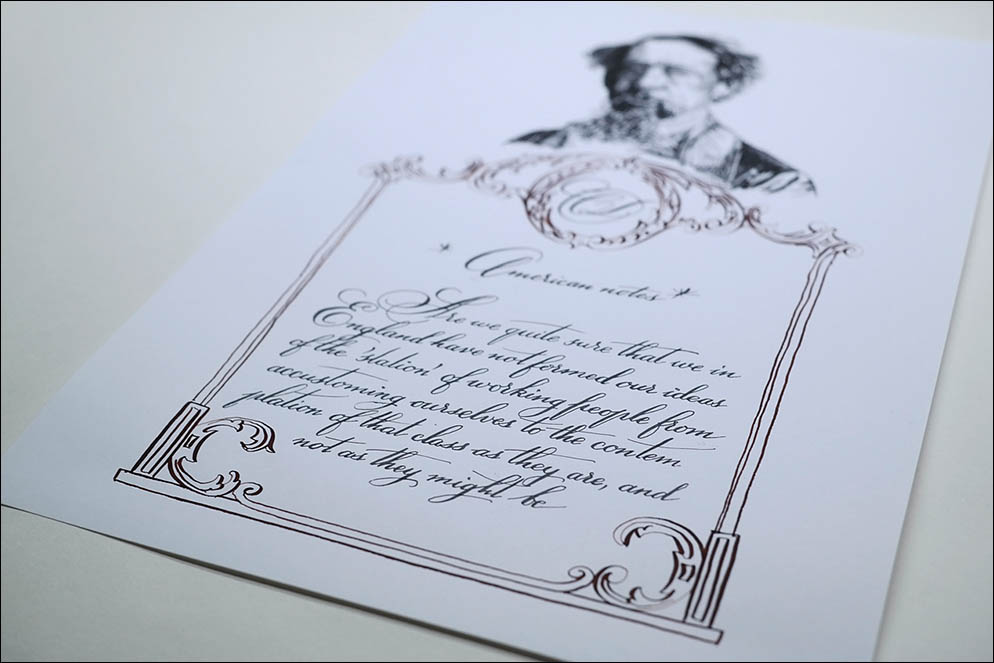 CD
* American notes *
Are we quite sure that we in
England have not formed our ideas
of the 'station' of working people from
accustoming ourselves to the contem
plation of that class as they are, and
not as they might be